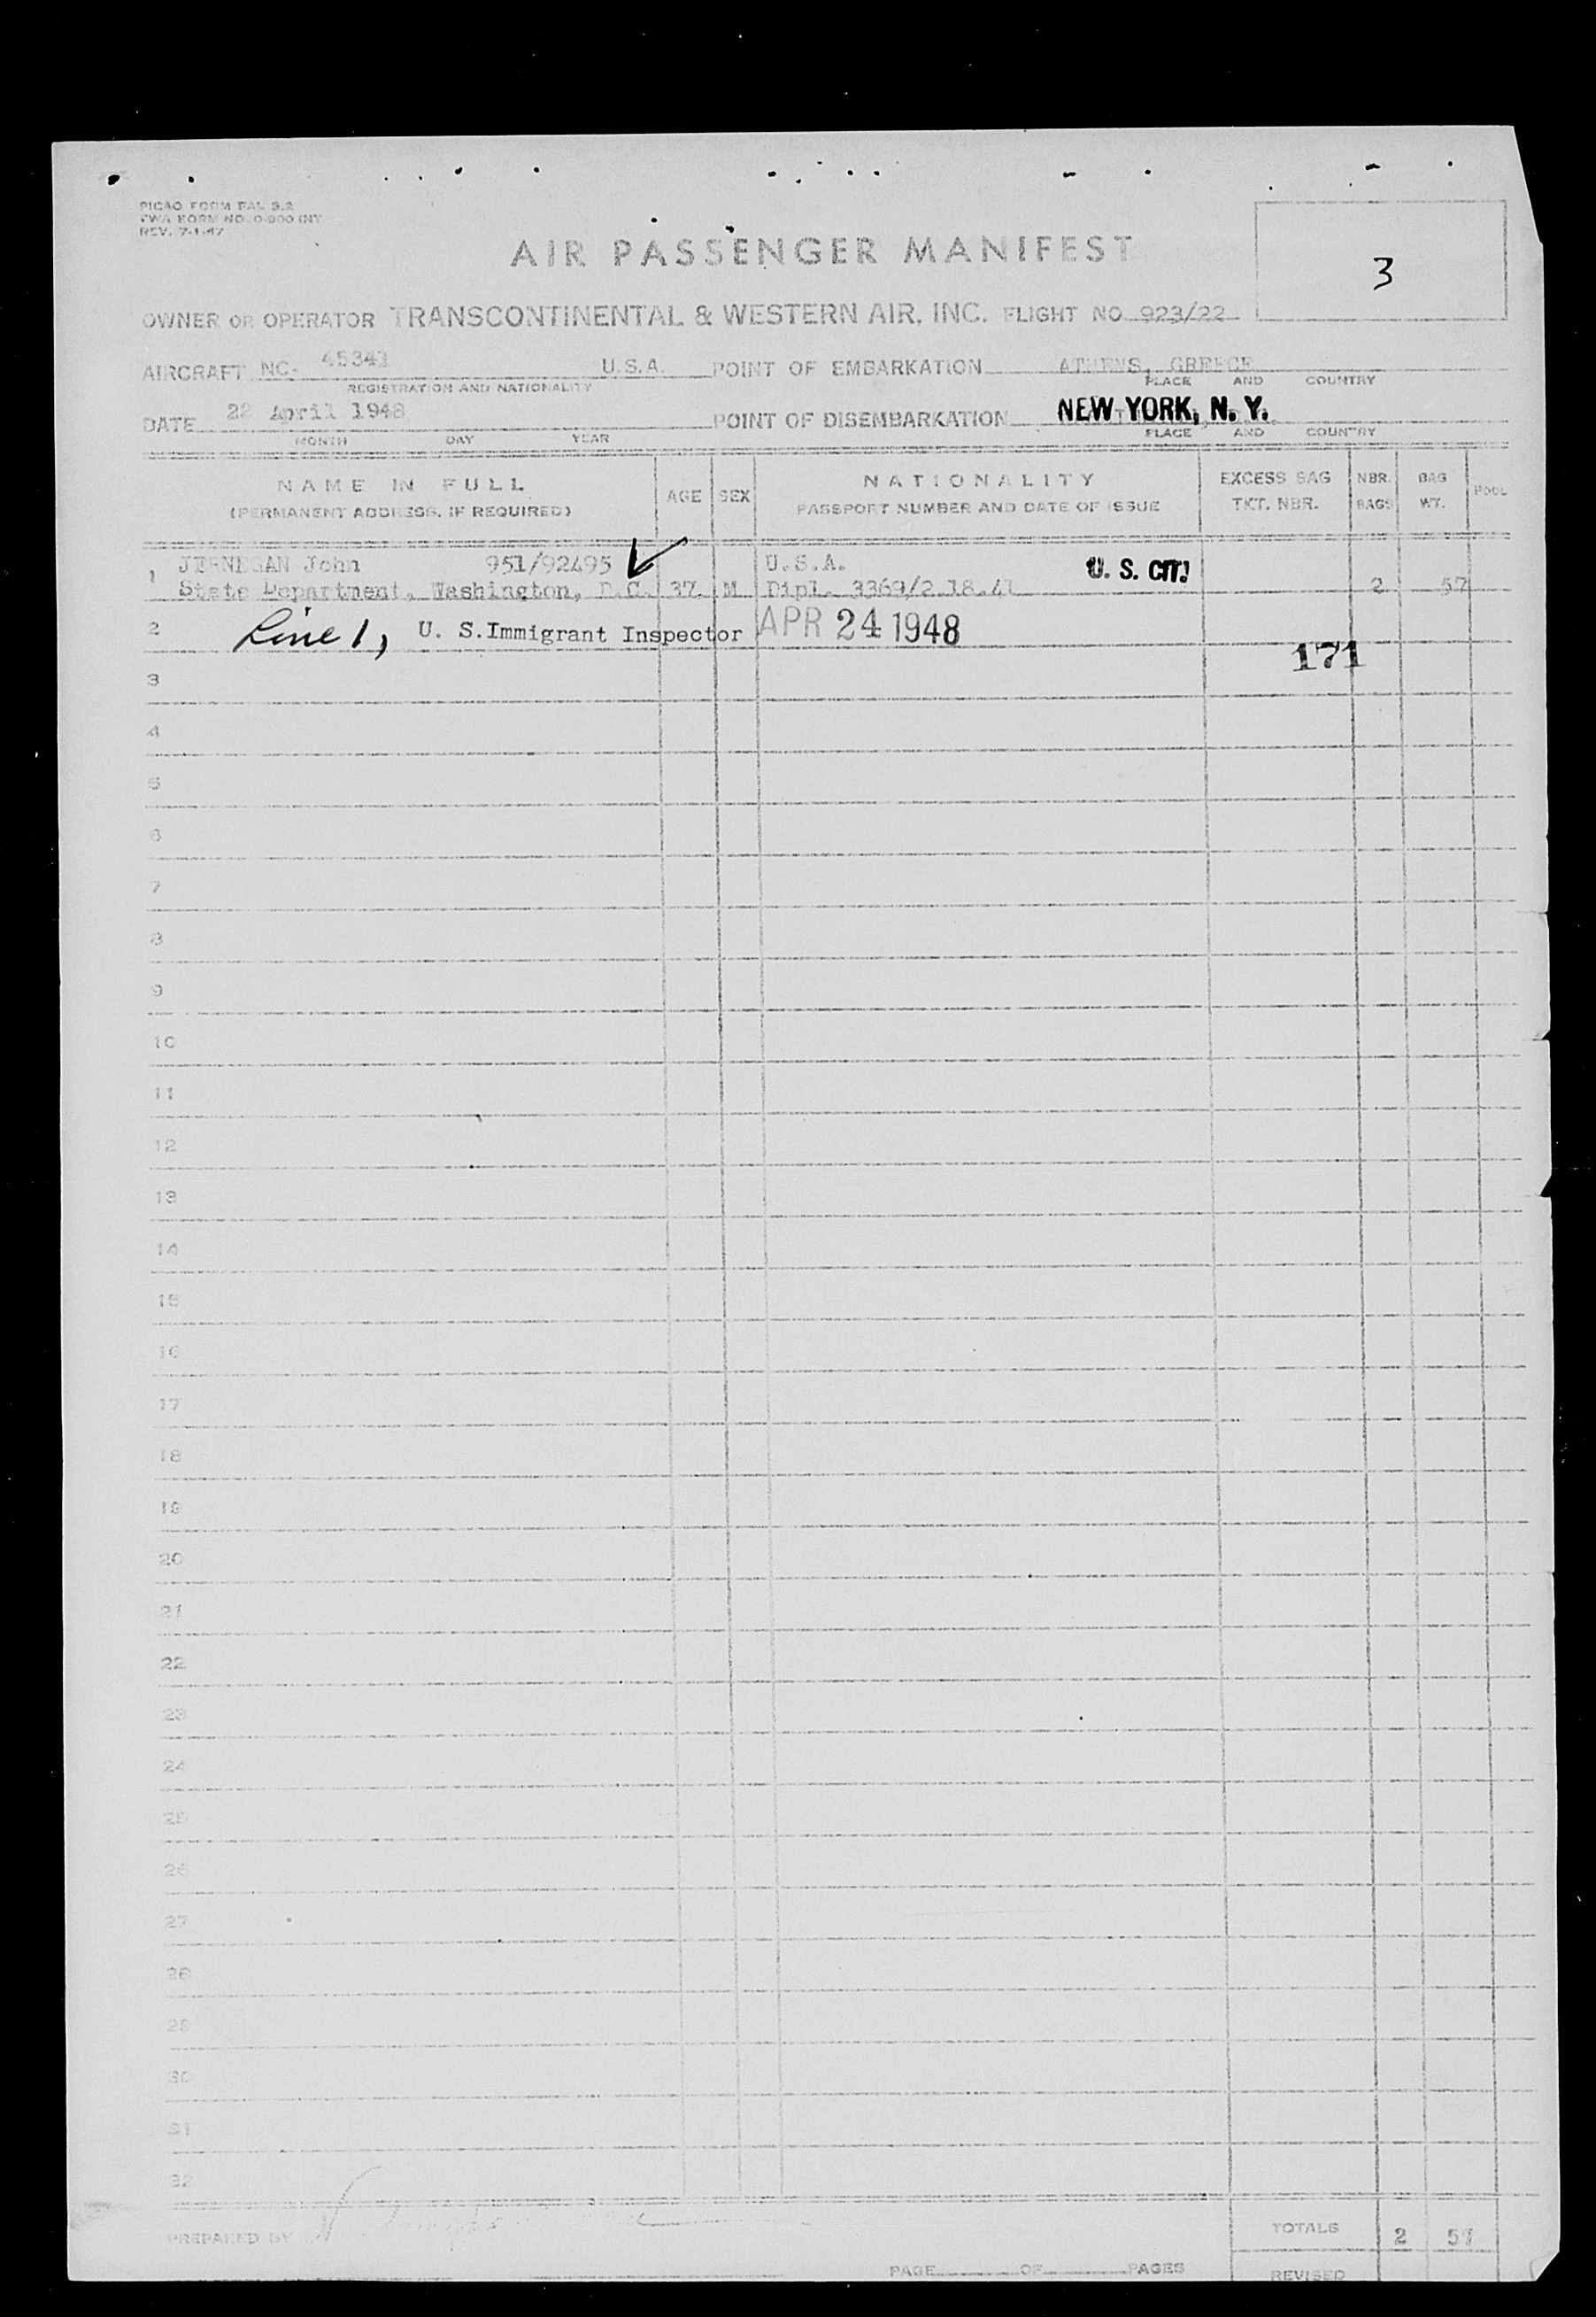 PICAO FORM FAL 3.2
TWA FORM NO. 0-900 INT
REV. 7-1-47
AIR PASSENGER MANIFEST
3
OWNER OR OPERATOR TRANSCONTINENTAL & WESTERN AIR, INC. FLIGHT NO 923/22
AIRCRAFT NC- 45341 U.S.A. POINT OF EMBARKATION ATHENS, GREECE
REGISTRATION AND NATIONALITY PLACE AND COUNTRY
DATE 22 April 1948 POINT OF DISEMBARKATION NEW YORK, N. Y.
MONTH DAY YEAR PLACE AND COUNTRY
NAME IN FULL AGE SEX NATIONALITY EXCESS BAG NBR. BAG POOL
(PERMANENT ADDRESS, IF REQUIRED) PASSPORT NUMBER AND DATE OF ISSUE TKT. NBR. BAGS WT.
1 JERNEGAN John 951/92495 U.S.A. U. S. CIT.
State Department, Washington, D.C. 37 M Dipl. 3369/2.18.41 2 57
2 Line 1, U. S. Immigrant Inspector APR 24 1948
171
3
4
5
6
7
8
9
10
11
12
13
14
15
16
17
18
19
20
21
22
23
24
25
26
27
28
29
30
31
32
PREPARED BY TOTALS 2 57
PAGE OF PAGES REVISED